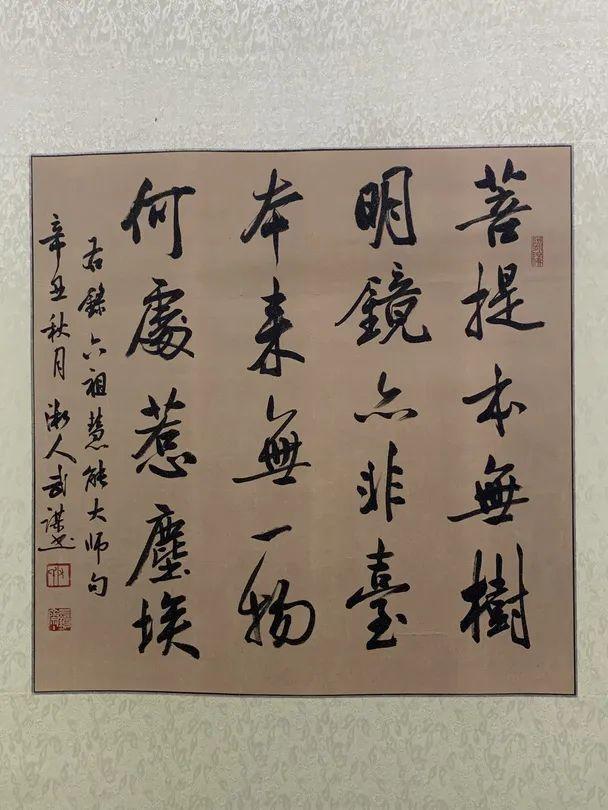 菩提本無樹
明鏡亦非臺
本来無一物
何處惹塵埃
右錄六祖慧能大师句
辛丑秋月 湘人武謀书